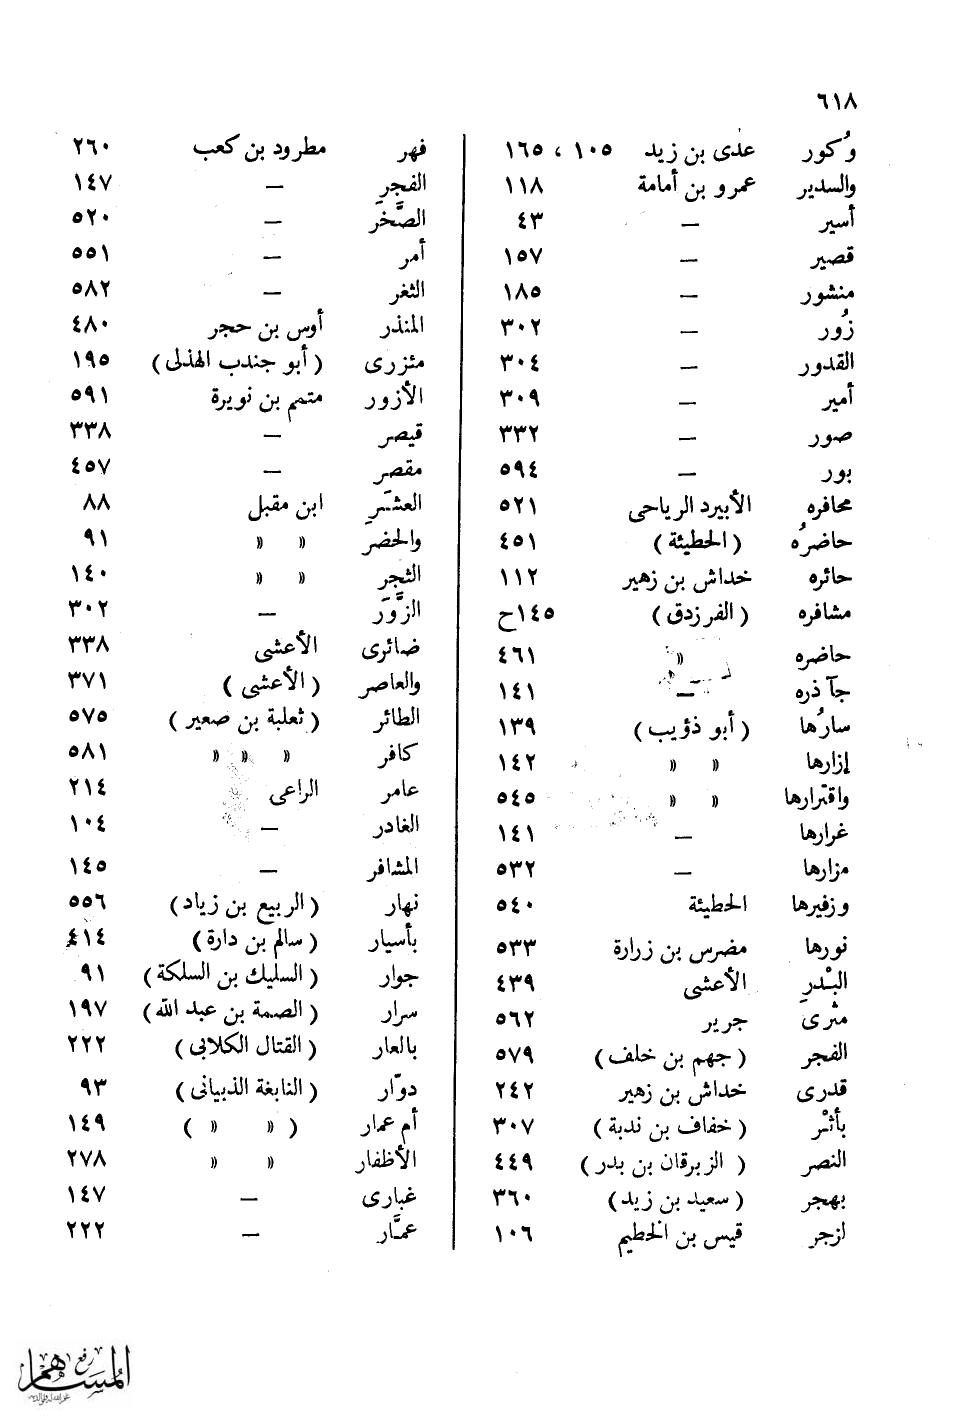 ٦١٨
وُكور عدى بن زيد ١٠٥ ، ١٦٥
والسدير عمرو بن أمامة ١١٨
أسير — ٤٣
قصير — ١٥٧
منشور — ١٨٥
زُور — ٣٠٢
القدور — ٣٠٤
أمير — ٣٠٩
صور — ٣٣٢
بور — ٥٩٤
محافره الأبيرد الرياحى ٥٢١
حاضرُه (الحطيئة) ٤٥١
حائره خداش بن زهير ١١٢
مشافره (الفرزدق) ١٤٥ح
حاضره » ٤٦١
جآذره — ١٤١
سارُها (أبو ذؤيب) ١٣٩
إزارها » » ١٤٢
واقترارها » » ٥٤٥
غرارها — ١٤١
مزارها — ٥٣٢
وزفيرها الحطيئة ٥٤٠
نورها مضرس بن زرارة ٥٣٣
البْدرِ الأعشى ٤٣٩
مثْرىَ جرير ٥٦٢
الفجر (جهم بن خلف) ٥٧٩
قدرى خداش بن زهير ٢٤٢
بأثْر (خفاف بن ندبة) ٣٠٧
النصر (الزبرقان بن بدر) ٤٤٩
بهجر (سعيد بن زيد) ٣٦٠
لزجر قيس بن الخطيم ١٠٦
فهر مطرود بن كعب ٢٦٠
الفجر — ١٤٧
الصَّخرَ — ٥٢٠
أمر — ٥٥١
الثغر — ٥٨٢
المنذر أوس بن حجر ٤٨٠
مئزرى (أبو جندب الهذلى) ١٩٥
الأزور متمم بن نويرة ٥٩١
قيصر — ٣٣٨
مقصر — ٤٥٧
العشَر ابن مقبل ٨٨
والحضرَ » » ٩١
الثجر » » ١٤٠
الزَّوَر — ٣٠٢
ضائرى الأعشى ٣٣٨
والعاصر (الأعشى) ٣٧١
الطائر (ثعلبة بن صعير) ٥٧٥
كافر » » » ٥٨١
عامر الراعى ٢١٤
الغادر — ١٠٤
المشافر — ١٤٥
نهار (الربيع بن زياد) ٥٥٦
بأسيار (سالم بن دارة) ٤١٤
جوار (السليك بن السلكة) ٩١
سرار (الصمة بن عبد الله) ١٩٧
بالعار (القتال الكلابى) ٢٢٢
دوّار (النابغة الذبيانى) ٩٣
أم عمار ( » » ) ١٤٩
الأظفار » » ٢٧٨
غبارى — ١٤٧
عمَّار — ٢٢٢
رفع
المساهم